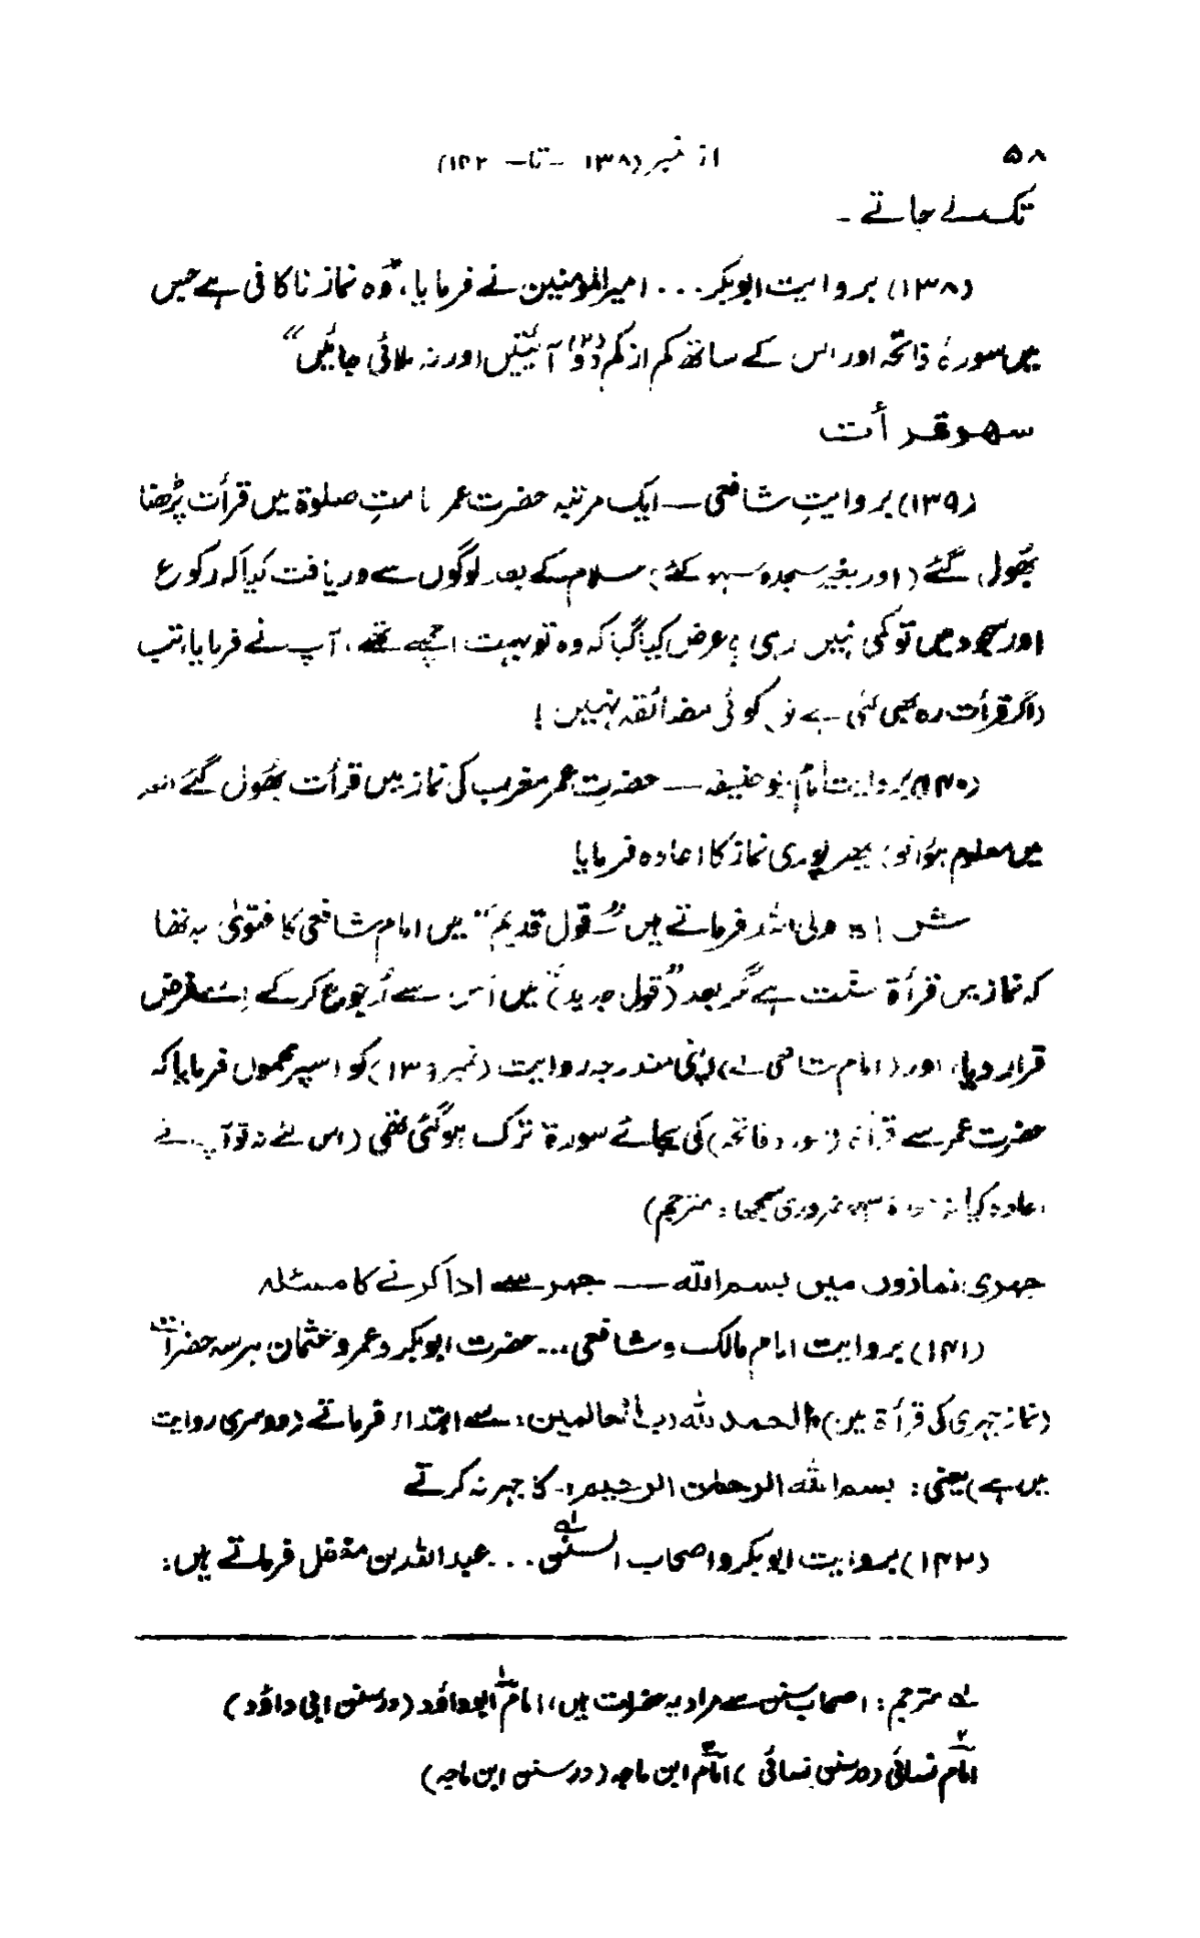 ۵۸ از نمبر (۱۳۸ - تا - ۱۴۲)
تک سلے جاتے -
(۱۳۸) بروایت ابوبکر ... امیرالمؤمنین نے فرمایا، "وہ نماز ناکافی ہے جس
میں سورۂ فاتحہ اور اس کے ساتھ کم از کم دو (۲) آیتیں اور نہ ملائی جائیں"
سہو قرأت
(۱۳۹) بروایتِ شافعی — ایک مرتبہ حضرت عمر امامتِ صلوٰۃ میں قرأت پڑھنا
بھول گئے (اور بغیر سجدہ سہو کئے) سلام کے بعد لوگوں سے دریافت کیا کہ رکوع
اور سجود میں تو کمی نہیں رہی؟ عرض کیا گیا کہ وہ تو بہت اچھے تھے، آپ نے فرمایا، تب
(اگر قرأت رہ بھی گئی ہے تو) کوئی مضائقہ نہیں!
(۱۴۰) بروایت امام ابوحنیفہ — حضرت عمر مغرب کی نماز میں قرأت بھول گئے (بعد
میں معلوم ہؤا تو) پھر پوری نماز کا اعادہ فرمایا
شاہ ولی اللہ فرماتے ہیں "قول قدیم" میں امام شافعی کا فتویٰ یہ تھا
کہ نماز میں قرأۃ سنت ہے مگر بعد "(قول جدید)" میں اس سے رجوع کر کے اسے فرض
قرار دیا، اور (امام شافعی نے) اپنی مندرجہ روایت (نمبر ۱۳۹) کو اسپر محمول فرمایا کہ
حضرت عمر سے قرأۃ (سورہ فاتحہ) کی بجائے سورۃ ترک ہو گئی تھی (اس لئے نہ تو آپ نے
اعادہ کیا نہ سجدہ سہو ضروری سمجھا: مترجم)
جہری نمازوں میں بسم اللہ — جہر سے ادا کرنے کا مسئلہ
(۱۴۱) بروایت امام مالک و شافعی ... حضرت ابوبکر و عمر و عثمان ہر سہ حضرات
(نماز جہری کی قرأۃ میں) الحمد للہ رب العالمین: سے ابتداء فرماتے (دوسری روایت
میں ہے) یعنی: بسم اللہ الرحمٰن الرحیم: کا جہر نہ کرتے
(۱۴۲) بروایت ابوبکر و اصحاب السنن ؎۱ ... عبداللہ بن مغفل فرماتے ہیں:
؎۱ مترجم: اصحاب سنن سے مراد یہ حضرات ہیں، امام ابوداؤد (در سنن ابی داؤد) ۱
امام نسائی (در سنن نسائی) ۲ امام ابن ماجہ (در سنن ابن ماجہ) ۳